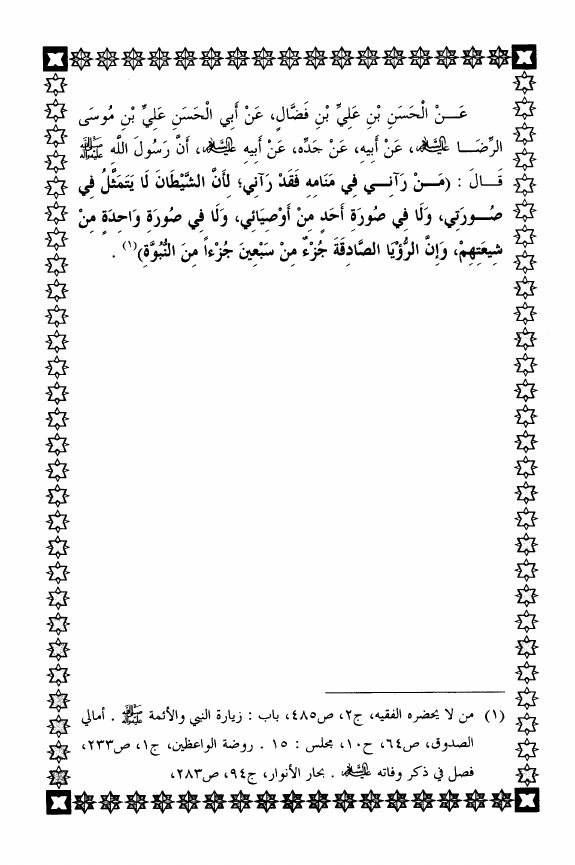 عَـــنْ الْحَسَنِ بْنِ عَلِيِّ بْنِ فَضَّالٍ، عَنْ أَبِي الْحَسَنِ عَلِيِّ بْنِ مُوسَى
الرِّضَـــا عليه السلام، عَنْ أَبِيهِ، عَنْ جَدِّه، عَنْ أَبِيهِ عليه السلام، أَنَّ رَسُولَ اللَّهِ ﷺ
قَـــالَ : (مَـــنْ رَآنـــي فِي مَنَامِهِ فَقَدْ رَآنِي؛ لِأَنَّ الشَّيْطَانَ لَا يَتَمَثَّلُ فِي
صُـــورَتِي، وَلَا فِي صُورَةِ أَحَدٍ مِنْ أَوْصِيَائِي، وَلَا فِي صُورَةِ وَاحِدَةٍ مِنْ
شِيعَتِهِمْ، وَإِنَّ الرُّؤْيَا الصَّادِقَةَ جُزْءٌ مِنْ سَبْعِينَ جُزْءاً مِنَ النُّبُوَّةِ)(١) .
(١) من لا يحضره الفقيه، ج٢، ص٤٨٥، باب : زيارة النبي والأئمة . أمالي
الصدوق، ص٦٤، ح١٠، مجلس : ١٥ . روضة الواعظين، ج١، ص٢٣٣،
فصل في ذكر وفاته عليه السلام . بحار الأنوار، ج٩٤، ص٢٨٣،